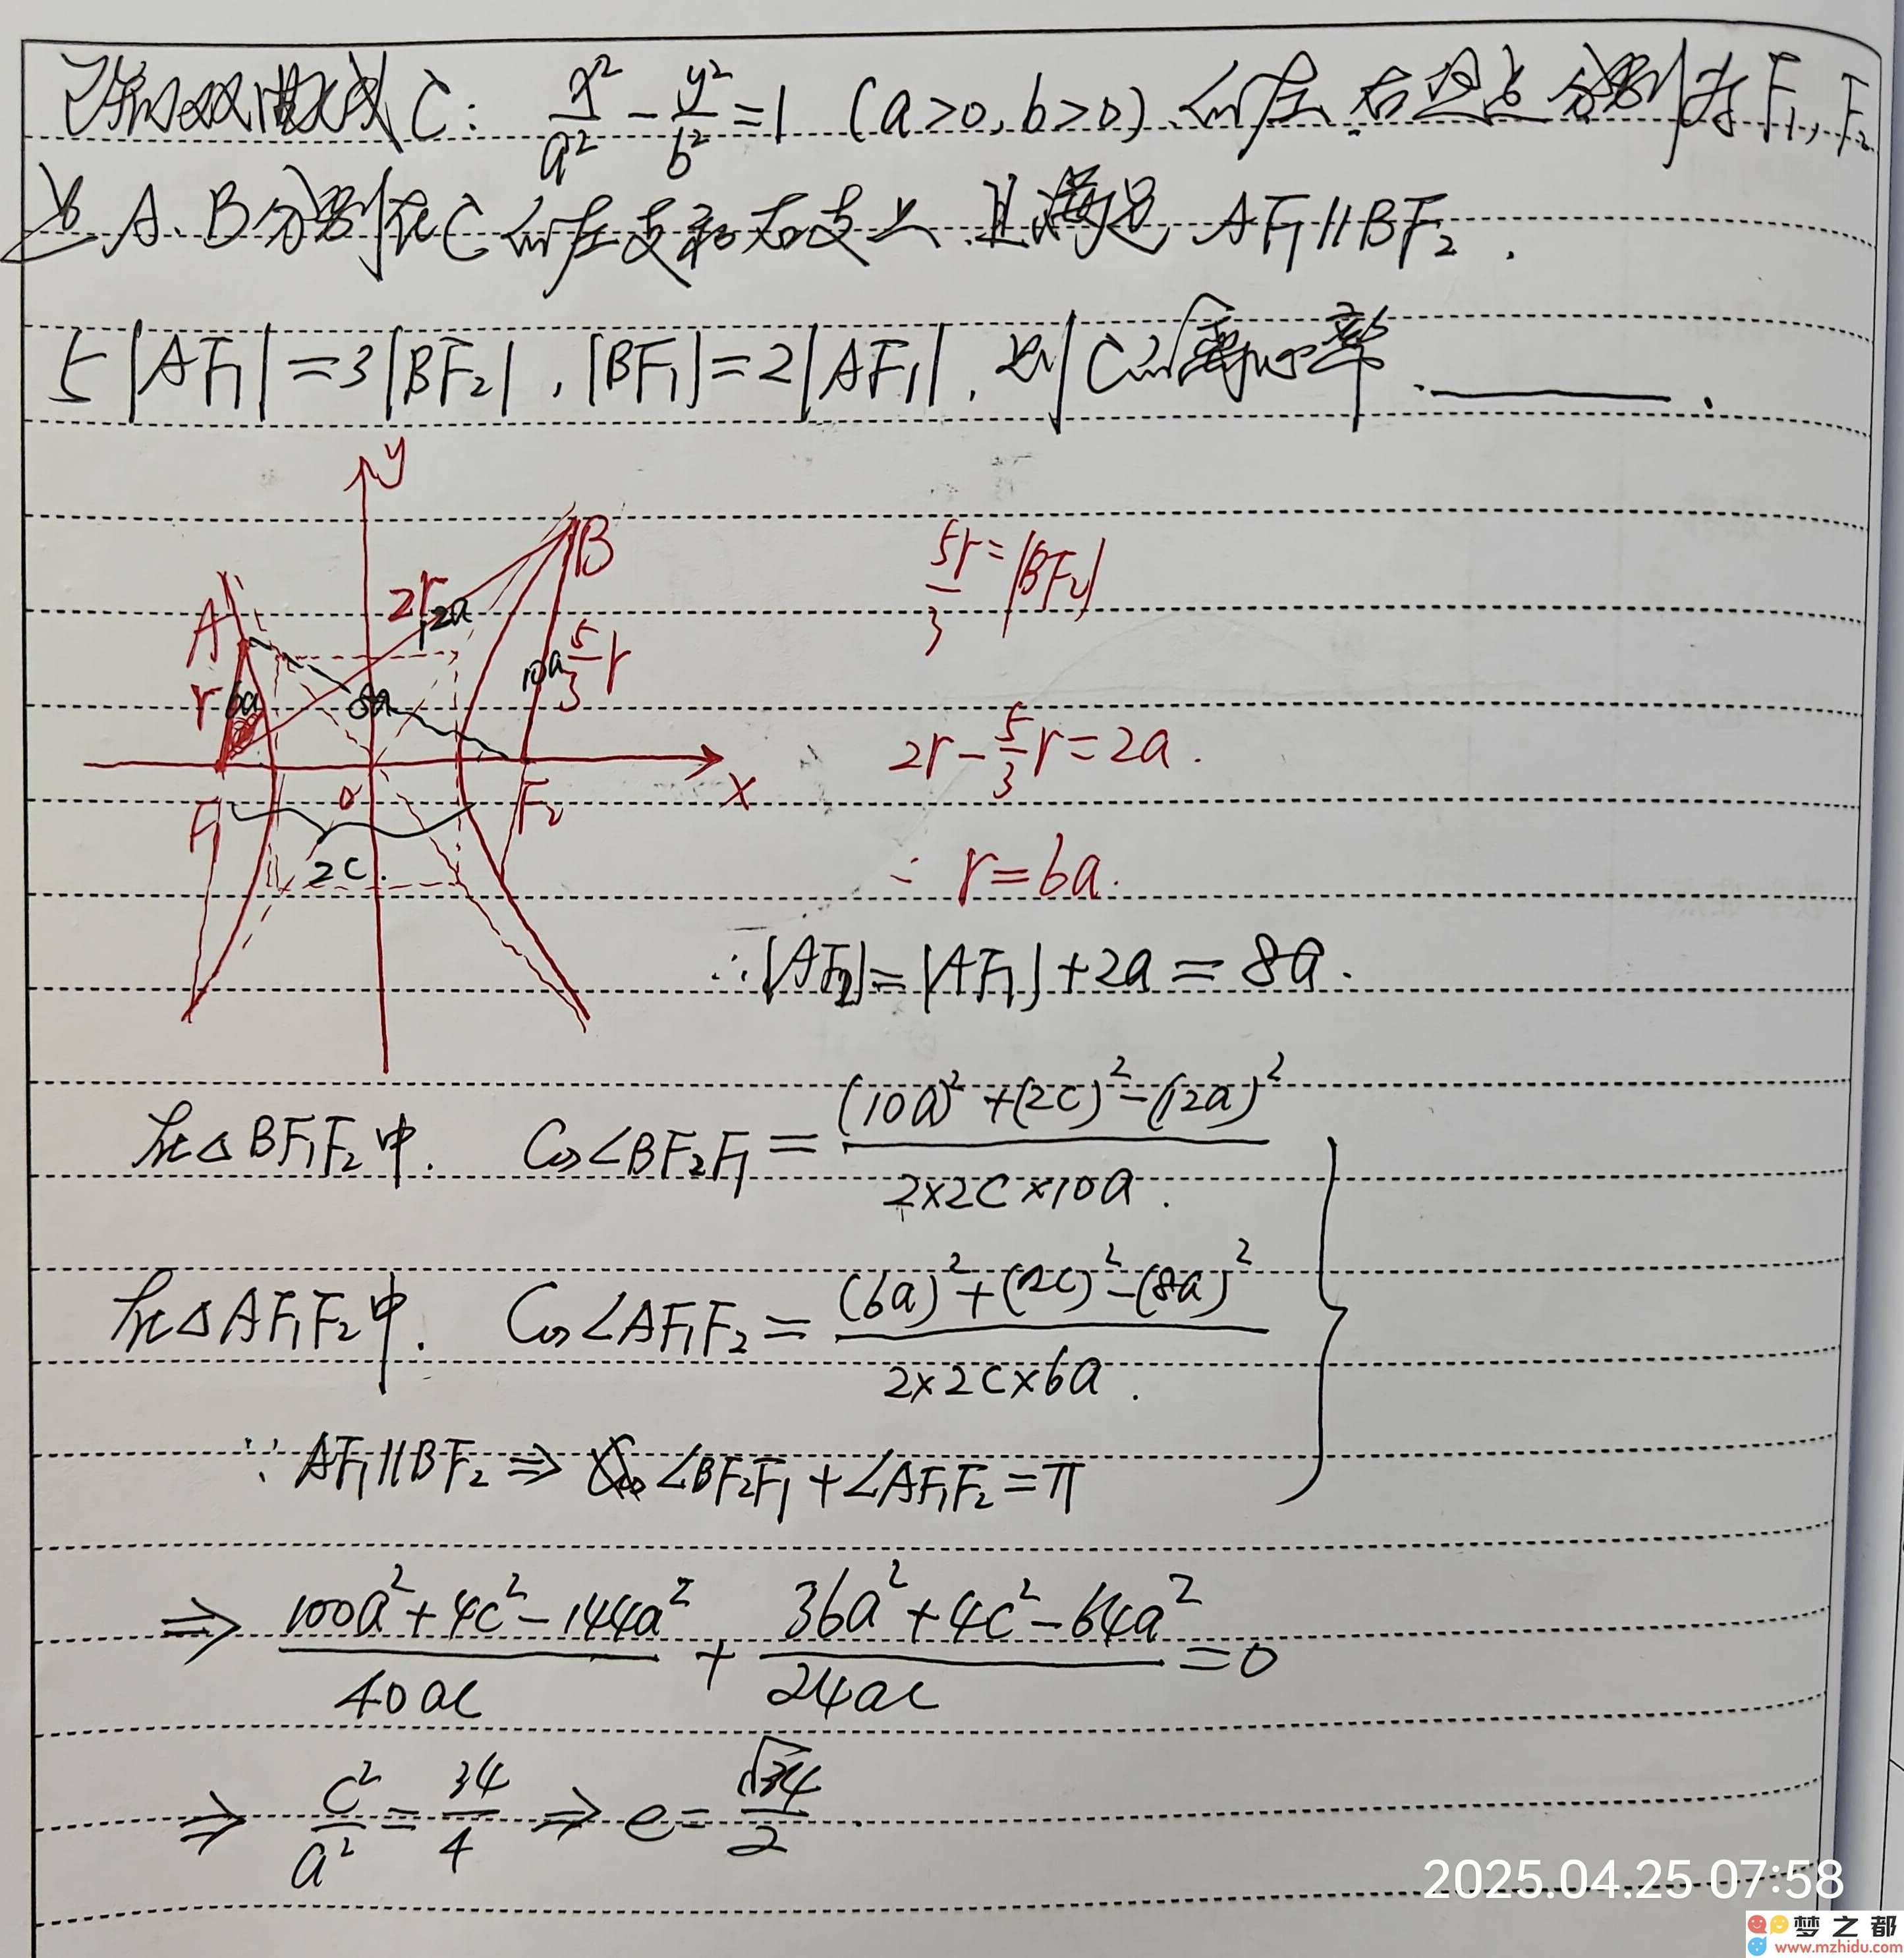 已知双曲线C: x²/a² - y²/b² = 1 (a>0, b>0) 的左、右焦点分别为F₁, F₂
点A、B分别在C的左支和右支上, 且满足 AF₁∥BF₂.
5|AF₁|=3|BF₂|, |BF₁|=2|AF₁|, 则C的离心率 ______.
y
B
A
2r
12a
5/3 r
10a
r
6a
8a
F₁
O
F₂
x
2c.
5r/3 = |BF₂|
2r - 5/3 r = 2a.
∴ r = 6a.
∴ |AF₂| = |AF₁| + 2a = 8a.
在△BF₁F₂中. Cos∠BF₂F₁ = ((10a)² + (2c)² - (12a)²) / (2×2c×10a).
在△AF₁F₂中. Cos∠AF₁F₂ = ((6a)² + (2c)² - (8a)²) / (2×2c×6a).
∵ AF₁∥BF₂ ⇒ ∠BF₂F₁ + ∠AF₁F₂ = π
⇒ (100a² + 4c² - 144a²) / 40ac + (36a² + 4c² - 64a²) / 24ac = 0
⇒ c²/a² = 34/4 ⇒ e = √34/2.
2025.04.25 07:58
梦之都
www.mzhidu.com